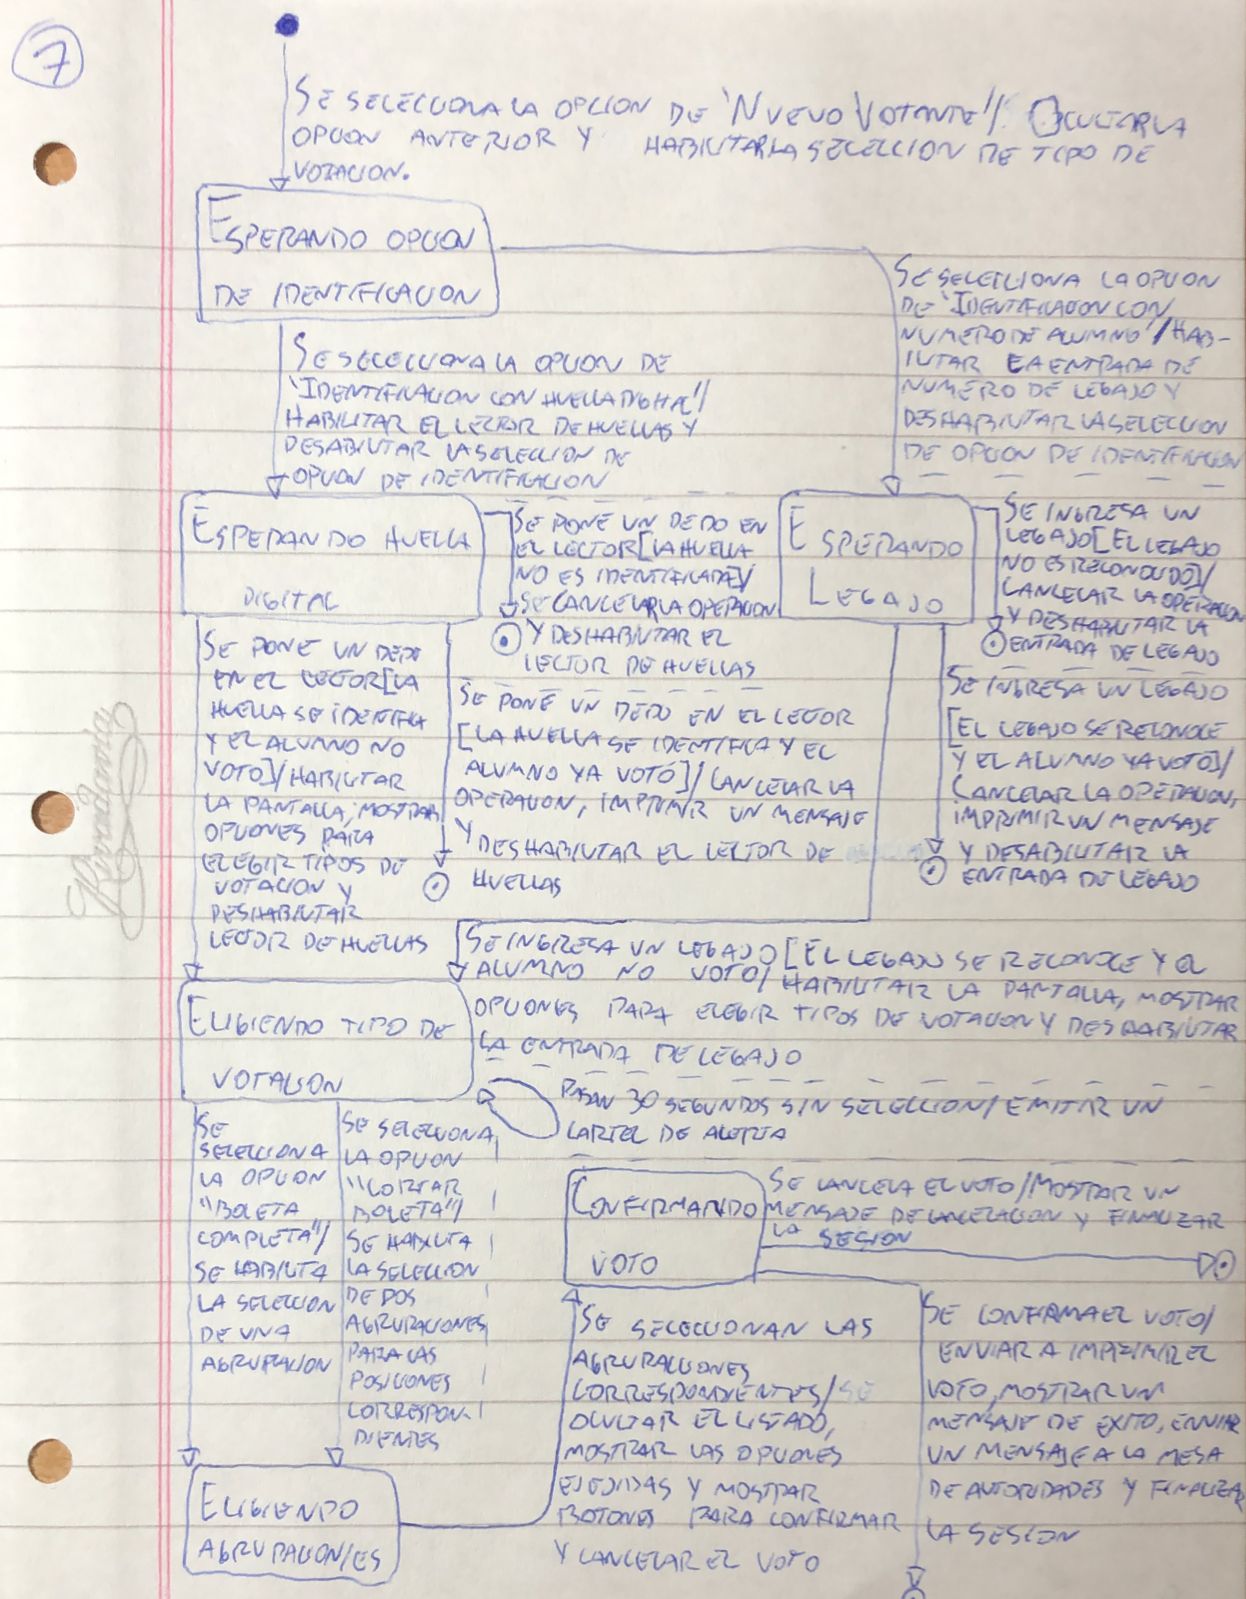 7
SE SELECCIONA LA OPCION DE 'NUEVO VOTANTE'/ OCULTAR LA
OPCION ANTERIOR Y HABILITAR LA SELECCION DE TIPO DE
VOTACION.
ESPERANDO OPCION
DE IDENTIFICACION
SE SELECCIONA LA OPCION
DE 'IDENTIFICACION CON
NUMERO DE ALUMNO'/HAB-
ILITAR LA ENTRADA DE
NUMERO DE LEGAJO Y
DESHABILITAR LA SELECCION
DE OPCION DE IDENTIFICACION
SE SELECCIONA LA OPCION DE
'IDENTIFICACION CON HUELLA DIGITAL'/
HABILITAR EL LECTOR DE HUELLAS Y
DESABILITAR LA SELECCION DE
OPCION DE IDENTIFICACION
ESPERANDO HUELLA
DIGITAL
SE PONE UN DEDO EN
EL LECTOR[LA HUELLA
NO ES IDENTIFICADA]/
SE CANCELAR LA OPERACION
Y DESHABILITAR EL
LECTOR DE HUELLAS
ESPERANDO
LEGAJO
SE INGRESA UN
LEGAJO[EL LEGAJO
NO ES RECONOCIDO]/
CANCELAR LA OPERACION
Y DESHABILITAR LA
ENTRADA DE LEGAJO
SE PONE UN DEDO
EN EL LECTOR[LA
HUELLA SE IDENTIFICA
Y EL ALUMNO NO
VOTO]/HABILITAR
LA PANTALLA, MOSTRAR
OPCIONES PARA
ELEGIR TIPOS DE
VOTACION Y
DESHABILITAR
LECTOR DE HUELLAS
SE PONE UN DEDO EN EL LECTOR
[LA HUELLA SE IDENTIFICA Y EL
ALUMNO YA VOTÓ]/CANCELAR LA
OPERACION, IMPRIMIR UN MENSAJE
Y DESHABILITAR EL LECTOR DE
HUELLAS
SE INGRESA UN LEGAJO
[EL LEGAJO SE RECONOCE
Y EL ALUMNO YA VOTO]/
CANCELAR LA OPERACION,
IMPRIMIR UN MENSAJE
Y DESABILITAR LA
ENTRADA DE LEGAJO
SE INGRESA UN LEGAJO [EL LEGAJO SE RECONOCE Y EL
ALUMNO NO VOTO/ HABILITAR LA PANTALLA, MOSTRAR
OPCIONES PARA ELEGIR TIPOS DE VOTACION Y DESHABILITAR
LA ENTRADA DE LEGAJO
ELIGIENDO TIPO DE
VOTACION
PASAN 30 SEGUNDOS SIN SELECCION/ EMITIR UN
CARTEL DE ALERTA
SE
SELECCIONA
LA OPCION
"BOLETA
COMPLETA"/
SE HABILITA
LA SELECCION
DE UNA
AGRUPACION
SE SELECCIONA
LA OPCION
"CORTAR
BOLETA"/
SE HABILITA
LA SELECCION
DE DOS
AGRUPACIONES
PARA LAS
POSICIONES
CORRESPON-
DIENTES
CONFIRMANDO
VOTO
SE CANCELA EL VOTO/MOSTRAR UN
MENSAJE DE CANCELACION Y FINALIZAR
LA SESION
SE SELECCIONAN LAS
AGRUPACIONES
CORRESPONDIENTES/SE
OCULTAR EL LISTADO,
MOSTRAR LAS OPCIONES
ELEJIDAS Y MOSTRAR
BOTONES PARA CONFIRMAR
Y CANCELAR EL VOTO
SE CONFIRMA EL VOTO/
ENVIAR A IMPRIMIR EL
VOTO, MOSTRAR UN
MENSAJE DE EXITO, ENVIAR
UN MENSAJE A LA MESA
DE AUTORIDADES Y FINALIZAR
LA SESION
ELIGIENDO
AGRUPACION/ES